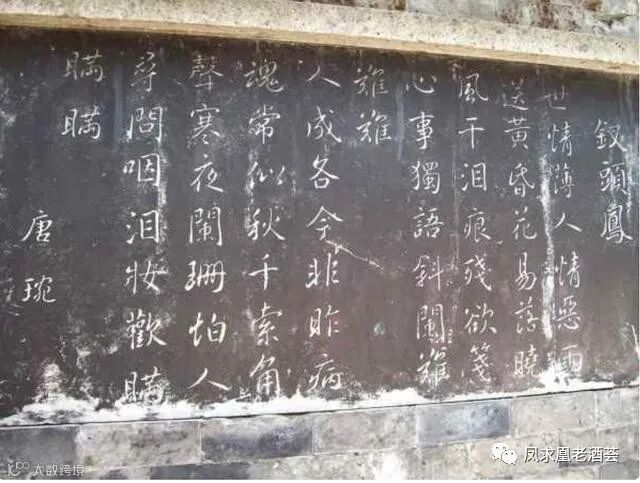 釵頭鳳
世情薄人情惡雨
送黃昏花易落曉
風干泪痕殘欲箋
心事獨語斜闌難
難難
人成各今非昨病
魂常似秋千索角
聲寒夜闌珊怕人
尋問咽泪妝歡瞞
瞞瞞
唐琬
大数跨境
凤求凰老酒荟